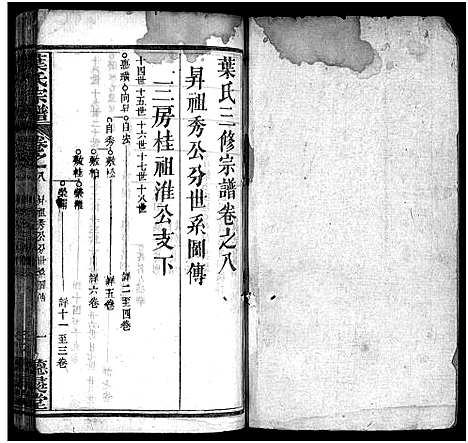 葉氏三修宗譜卷之八
昇祖秀公分世系圖傳
三房桂祖淮公支下
十四世 十五世 十六世 十七世 十八世
思璜 向 自宏 詳二至四卷
自秀 敷松 詳五卷
敷柏 詳六卷
敷桂 榮
榮 詳十一至三卷
葉氏宗譜 卷之八 昇祖秀公分世系圖傳 一